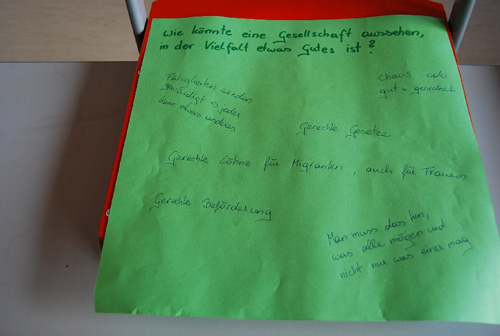 Wie könnte eine Gesellschaft aussehen,
in der Vielfalt etwas Gutes ist?
Fähigkeiten werden
gewürdigt → jeder
kann etwas anderes
Chaos
gut geordnet
Gerechte Gesetze
Gerechte Löhne für Migranten, auch für Frauen
Gerechte Beförderung
Man muss das tun,
was alle mögen und
nicht nur was einer mag